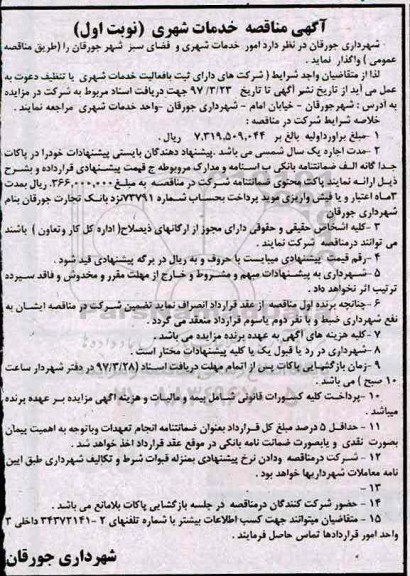 آگهی مناقصه خدمات شهری (نوبت اول)
شهرداری جورقان در نظر دارد امور خدمات شهری و فضای سبز شهر جورقان را (طریق مناقصه
عمومی ) واگذار نماید .
لذا از متقاضیان واجد شرایط ( شرکت های دارای ثبت بافعالیت خدمات شهری یا تنظیف دعوت به
عمل می آید از تاریخ نشر آگهی تا تاریخ ۹۷/۳/۲۳ جهت دریافت اسناد مربوط به شرکت در مزایده
به آدرس : شهرجورقان - خیابان امام - شهرداری جورقان -واحد خدمات شهری مراجعه نمایند .
خلاصه شرایط شرکت در مناقصه :
۱-مبلغ براورداولیه بالغ بر ۷,۳۱۹,۵۰۹,۰۴۴ ریال .
۲-مدت اجاره یک سال شمسی می باشد .پیشنهاد دهندگان بایستی پیشنهادات خودرا در پاکات
جداگانه الف ضمانتنامه بانکی ب اسنامه و مدارک مربوطه ج قیمت پیشنهادی قرارداده و بشرح
ذیل ارائه نمایند پاکت محتوی ضمانتنامه شرکت در مناقصه به مبلغ ۳۶۶,۰۰۰,۰۰۰ ریال بمدت
۳ماه اعتبار و یا فیش واریزی موید پرداخت بحساب شماره ۷۳۷۹۱نزد بانک تجارت جورقان بنام
شهرداری جورقان
۳-کلیه اشخاص حقیقی و حقوقی دارای مجوز از ارگانهای ذیصلاح( اداره کل کار وتعاون ) باشند
می توانند درمناقصه شرکت نمایند .
۴-رقم قیمت پیشنهادی میبایست با حروف و به ریال در برگه پیشنهادی قید شود .
۵-شهرداری به پیشنهادات مبهم و مشروط و خارج از مهلت مقرر و مخدوش و فاقد سپرده
ترتیب اثر نخواهد داد .
۶-چنانچه برنده اول مناقصه از عقد قرارداد انصراف نماید تضمین شرکت در مناقصه ایشان به
نفع شهرداری ضبط و با نفر دوم یاسوم قرارداد منعقد می گردد .
۷-کلیه هزینه های آگهی به عهده برنده مزایده می باشد .
۸-شهرداری در رد یا قبول یک یا کلیه پیشنهادات مختار است .
۹-زمان بازگشایی پاکات پس از اتمام مهلت دریافت اسناد (۹۷/۳/۲۸ در دفتر شهردار ساعت
۱۰ صبح ) می باشد .
۱۰-پرداخت کلیه کسورات قانونی شامل بیمه و مالیات و هزینه آگهی مزایده بر عهده برنده
میباشد .
۱۱ - حداقل ۵ درصد مبلغ کل قرارداد بعنوان ضمانتنامه انجام تعهدات وباتوجه به اهمیت پیمان
بصورت نقدی و یابصورت ضمانت نامه بانکی در موقع عقد قرارداد اخذ خواهد شد .
۱۲ - شرکت درمناقصه ودادن نرخ پیشنهادی بمنزله قبوات شرط و تکالیف شهرداری طبق ایین
نامه معاملات شهرداریها خواهد بود .
۱۳ -
۱۴ - حضور شرکت کنندگان درمناقصه در جلسه بازگشایی پاکات بلامانع می باشد .
۱۵ - متقاضیان میتوانند جهت کسب اطلاعات بیشتر با شماره تلفنهای ۲ -۳۴۳۷۲۱۴۱ داخلی ۳
واحد امور قراردادها تماس حاصل فرمایند .
شهرداری جورقان